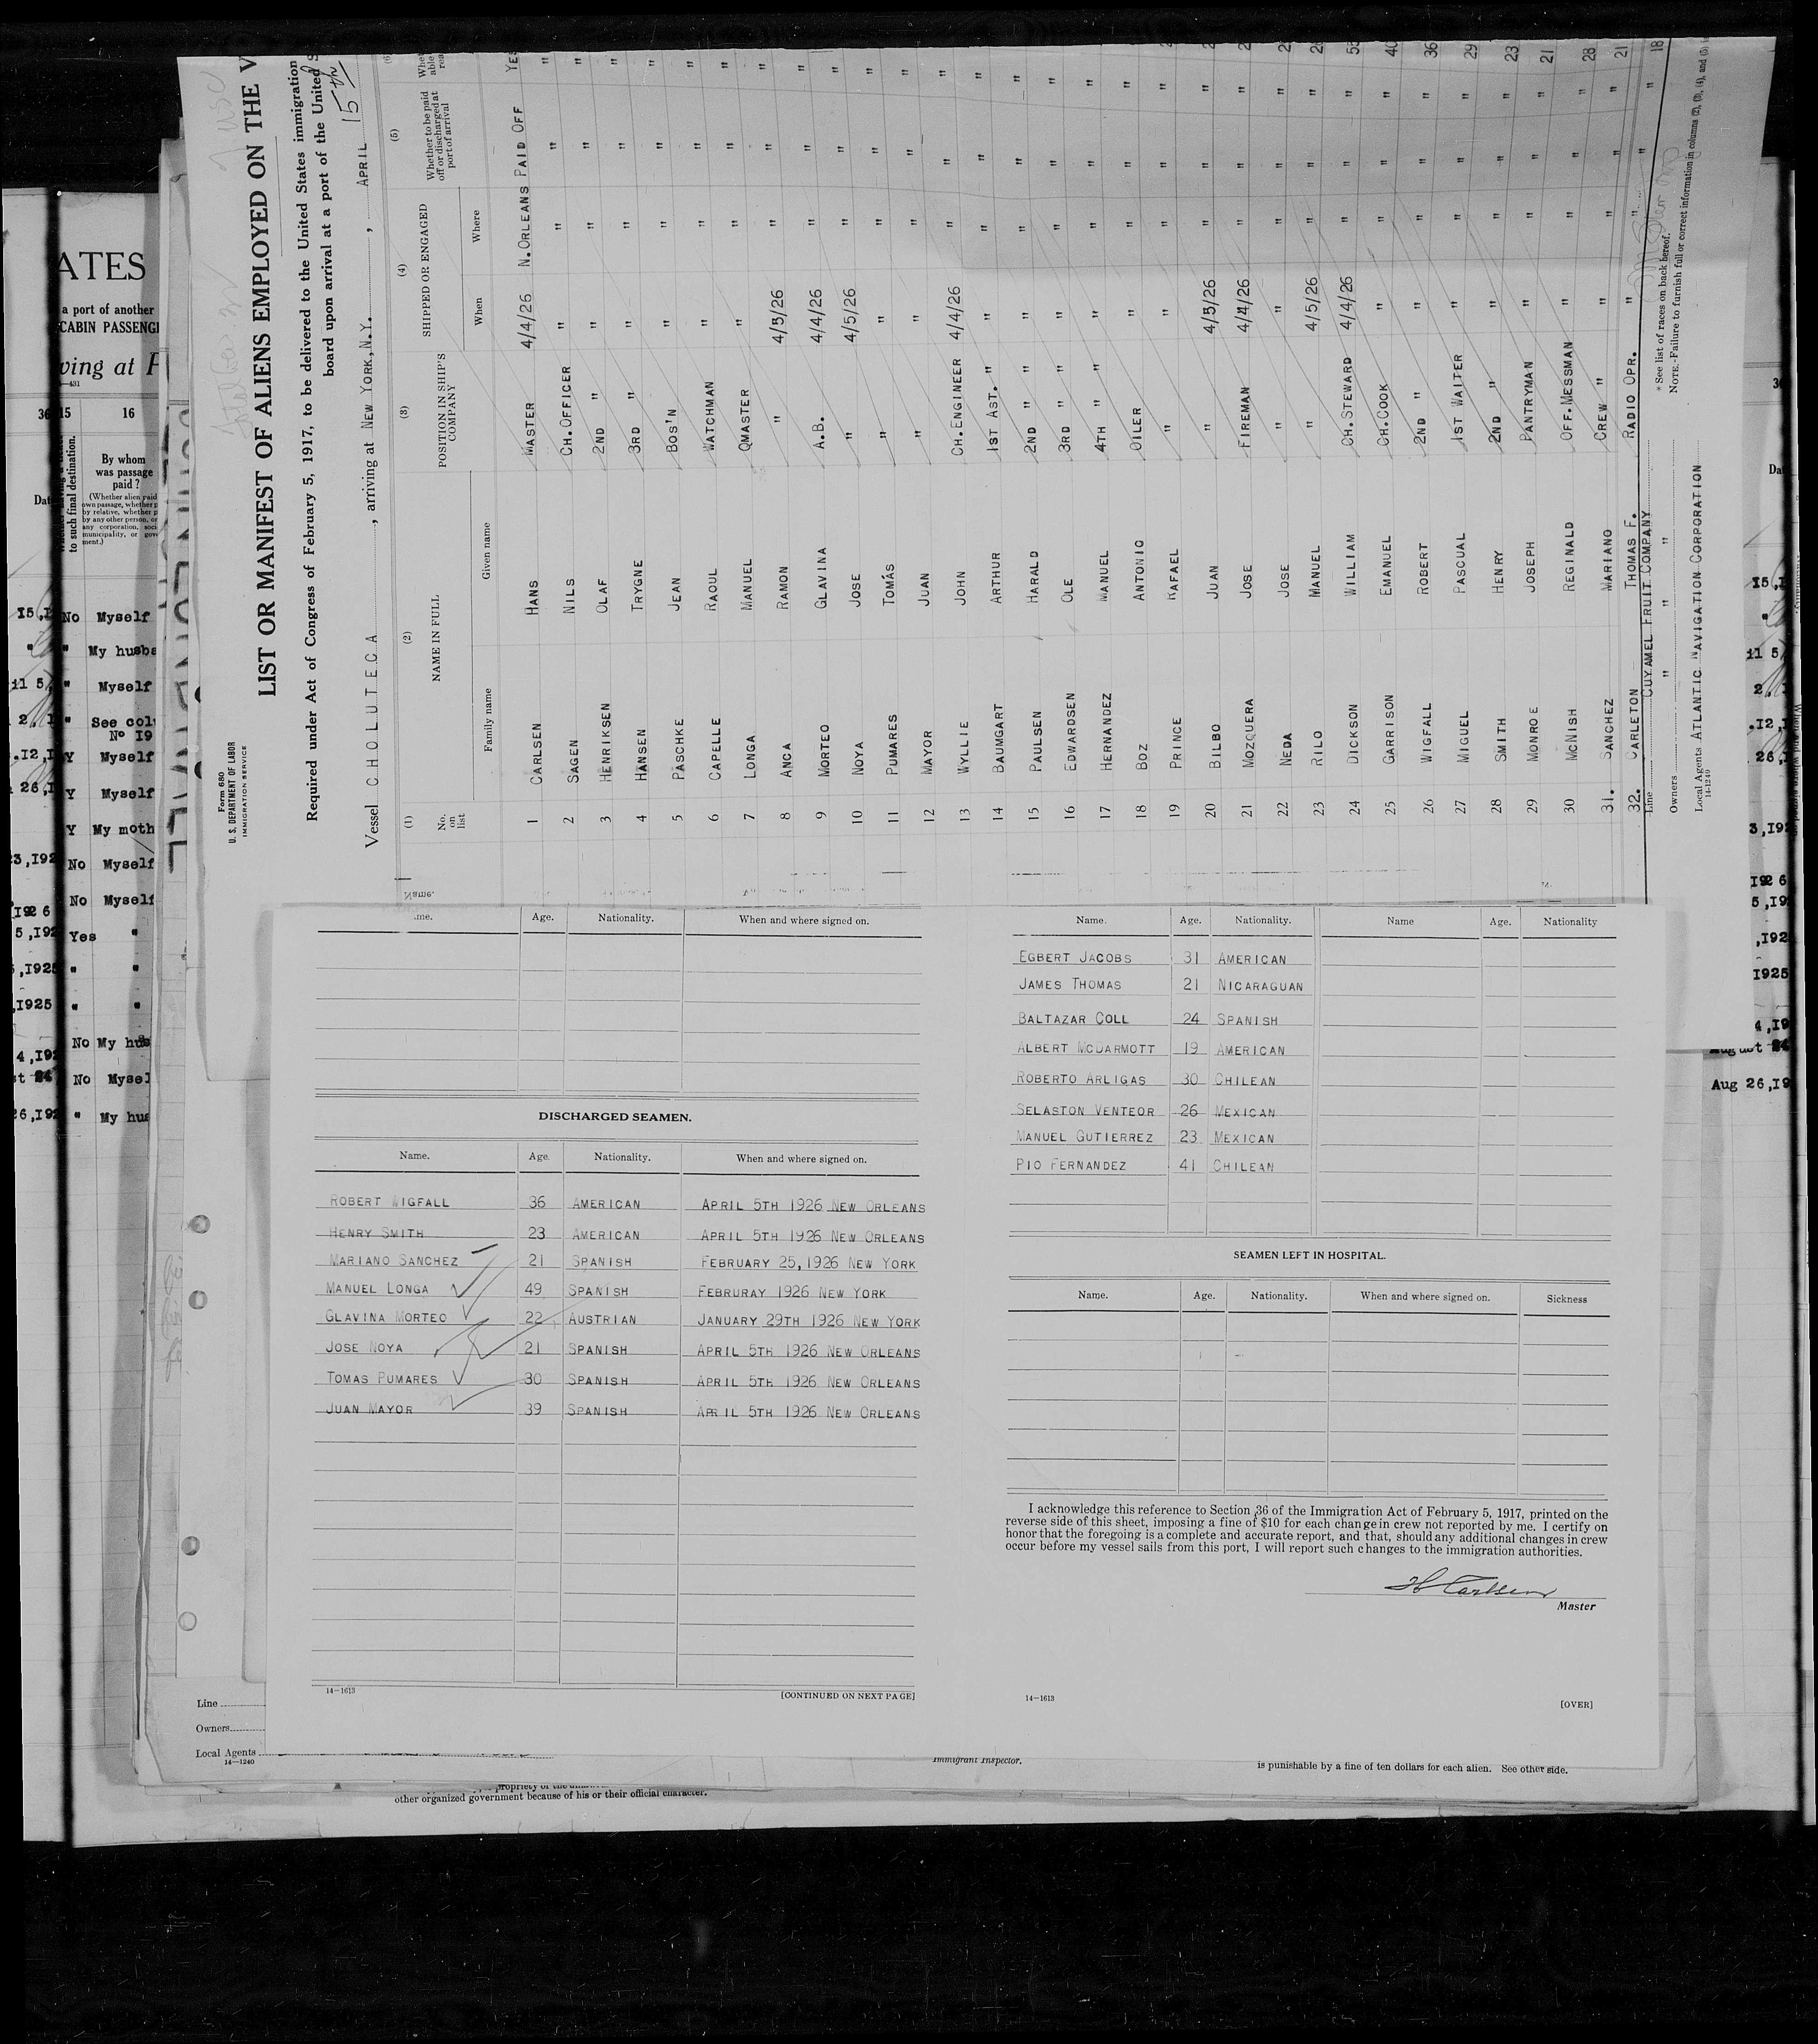 Form 680
U. S. DEPARTMENT OF LABOR
IMMIGRATION SERVICE
LIST OR MANIFEST OF ALIENS EMPLOYED ON THE V
Required under Act of Congress of February 5, 1917, to be delivered to the United States immigration
board upon arrival at a port of the United S
Vessel CHOLUTECA, arriving at NEW YORK, N.Y., APRIL 15th
(1) (2) (3) (4) (5)
No. on list NAME IN FULL POSITION IN SHIP'S COMPANY SHIPPED OR ENGAGED Whether to be paid off or discharged at port of arrival
Family name Given name When Where
1 CARLSEN HANS MASTER 4/4/26 N.ORLEANS PAID OFF YES
2 SAGEN NILS CH.OFFICER " " " "
3 HENRIKSEN OLAF 2ND " " " " "
4 HANSEN TRYGNE 3RD " " " " "
5 PASCHKE JEAN BOS'N " " " "
6 CAPELLE RAOUL WATCHMAN " " " "
7 LONGA MANUEL QMASTER " " " "
8 ANCA RAMON " 4/5/26 " " "
9 MORTEO GLAVINA A.B. 4/4/26 " " "
10 NOYA JOSE " 4/5/26 " " "
11 PUMARES TOMÁS " " " " "
12 MAYOR JUAN " " " " "
13 WYLLIE JOHN CH.ENGINEER 4/4/26 " " "
14 BAUMGART ARTHUR 1ST AST. " " " " "
15 PAULSEN HARALD 2ND " " " " " "
16 EDWARDSEN OLE 3RD " " " " " "
17 HERNANDEZ MANUEL 4TH " " " " " "
18 BOZ ANTONIO OILER " " " "
19 PRINCE RAFAEL " " " " "
20 BILBO JUAN " 4/5/26 " " "
21 MOZQUERA JOSE FIREMAN 4/4/26 " " "
22 NEDA JOSE " " " " "
23 RILO MANUEL " 4/5/26 " " "
24 DICKSON WILLIAM CH.STEWARD 4/4/26 " " "
25 GARRISON EMANUEL CH.COOK " " " " 40
26 WIGFALL ROBERT 2ND " " " " " 36
27 MIGUEL PASCUAL 1ST WAITER " " " " 29
28 SMITH HENRY 2ND " " " " " 23
29 MONROE JOSEPH PANTRYMAN " " " " 21
30 MCNISH REGINALD OFF.MESSMAN " " " " 28
31. SANCHEZ MARIANO CREW " " " " " 21
32. CARLETON THOMAS F. RADIO OPR. " " " " 18
Line CUYAMEL FRUIT COMPANY
Owners " " " "
Local Agents ATLANTIC NAVIGATION CORPORATION
14-1240
* See list of races on back hereof.
NOTE.-Failure to furnish full or correct information in columns (2), (3), (4), and (5) i
ATES
a port of another
CABIN PASSENG
ving at P
15 16
to such final destination.
By whom
was passage
paid ?
(Whether alien paid
own passage, whether p
by relative, whether p
by any other person, or
any corporation, soci
municipality, or gov
ment.)
No Myself
" My husba
" Myself
" See colu
Nº 19
Y Myself
Y Myself
Y My moth
No Myself
No Myself
Yes "
" "
" "
No My hus
No Mysel
" My hus
Aug 26,19
Name. Age. Nationality. When and where signed on.
DISCHARGED SEAMEN.
Name. Age. Nationality. When and where signed on.
ROBERT WIGFALL 36 AMERICAN APRIL 5TH 1926 NEW ORLEANS
HENRY SMITH 23 AMERICAN APRIL 5TH 1926 NEW ORLEANS
MARIANO SANCHEZ 21 SPANISH FEBRUARY 25, 1926 NEW YORK
MANUEL LONGA 49 SPANISH FEBRURAY 1926 NEW YORK
GLAVINA MORTEO 22 AUSTRIAN JANUARY 29TH 1926 NEW YORK
JOSE NOYA 21 SPANISH APRIL 5TH 1926 NEW ORLEANS
TOMAS PUMARES 30 SPANISH APRIL 5TH 1926 NEW ORLEANS
JUAN MAYOR 39 SPANISH APRIL 5TH 1926 NEW ORLEANS
14—1613 [CONTINUED ON NEXT PAGE]
Name. Age. Nationality. Name Age. Nationality
EGBERT JACOBS 31 AMERICAN
JAMES THOMAS 21 NICARAGUAN
BALTAZAR COLL 24 SPANISH
ALBERT MCDARMOTT 19 AMERICAN
ROBERTO ARLIGAS 30 CHILEAN
SELASTON VENTEOR 26 MEXICAN
MANUEL GUTIERREZ 23 MEXICAN
PIO FERNANDEZ 41 CHILEAN
SEAMEN LEFT IN HOSPITAL.
Name. Age. Nationality. When and where signed on. Sickness
I acknowledge this reference to Section 36 of the Immigration Act of February 5, 1917, printed on the
reverse side of this sheet, imposing a fine of $10 for each change in crew not reported by me. I certify on
honor that the foregoing is a complete and accurate report, and that, should any additional changes in crew
occur before my vessel sails from this port, I will report such changes to the immigration authorities.
H Carlsen
Master
14—1613 [OVER]
Line
Owners
Local Agents
14—1240
Immigrant Inspector.
is punishable by a fine of ten dollars for each alien. See other side.
other organized government because of his or their official character.